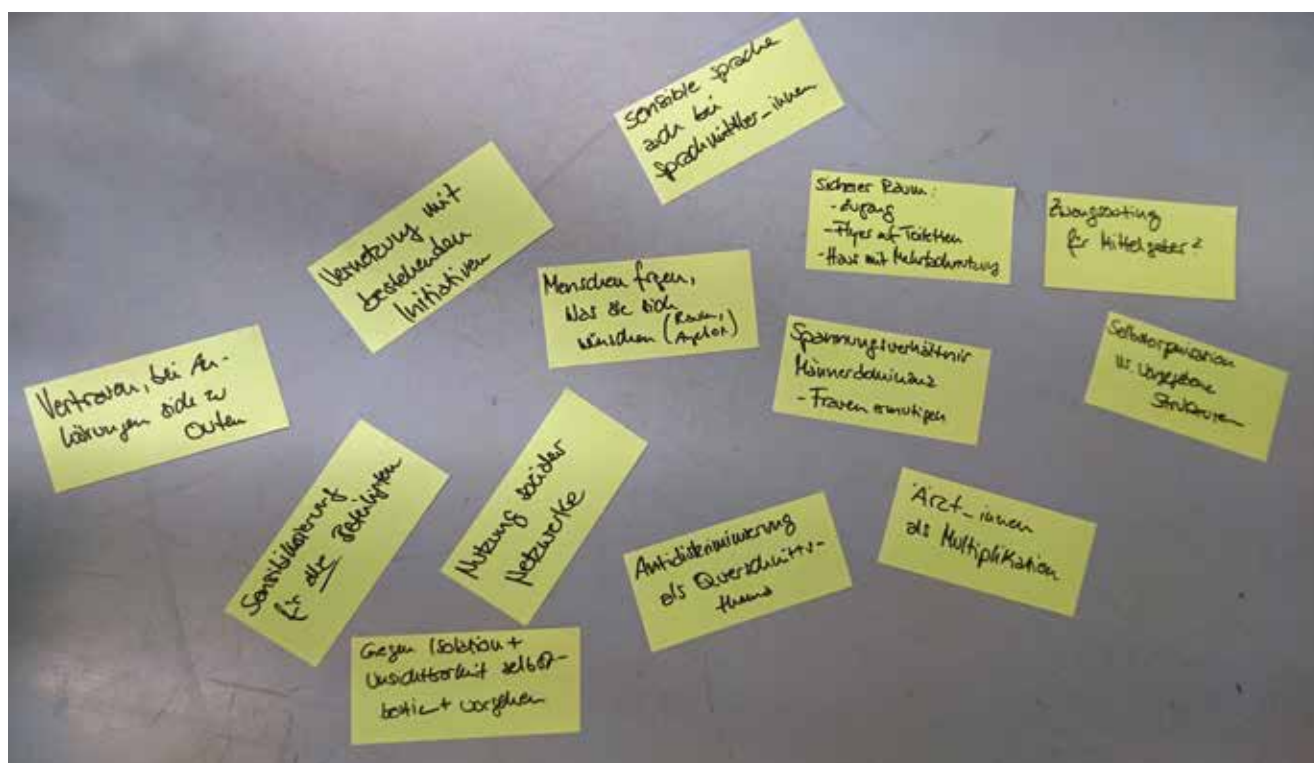 Sensible Sprache
auch bei
Sprachmittler_innen
Vernetzung mit
bestehenden
Initiativen
Sicherer Raum:
- Zugang
- Flyer auf Toiletten
- Haus mit Mehrfachnutzung
Zwangsouting
für Mittelgeber?
Menschen fragen,
Was sie sich
wünschen (Raum,
Angebot)
Spannungsverhältnis
Männerdominanz
- Frauen ermutigen
Selbstorganisation
vs. vorgegebene
Strukturen
Vertrauen, bei An-
hörungen sich zu
Outen
Sensibilisierung
für alle Beteiligten
Nutzung sozialer
Netzwerke
Antidiskriminierung
als Querschnitts-
thema
Ärzt_innen
als Multiplikation
Gegen Isolation +
Unsichtbarkeit selbst-
bestimmt vorgehen